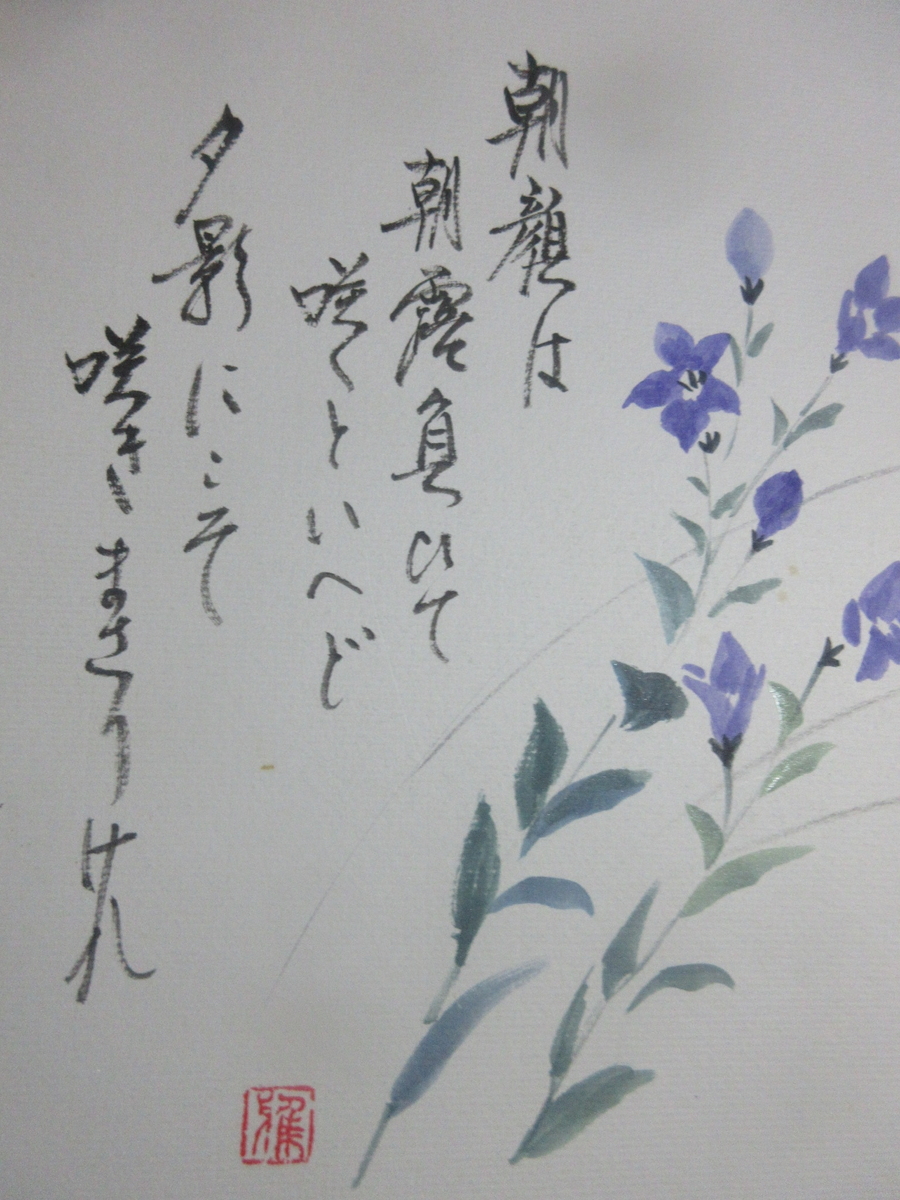 朝顔は
朝露負ひて
咲くといへど
夕影にこそ
咲きまさりけれ
雅